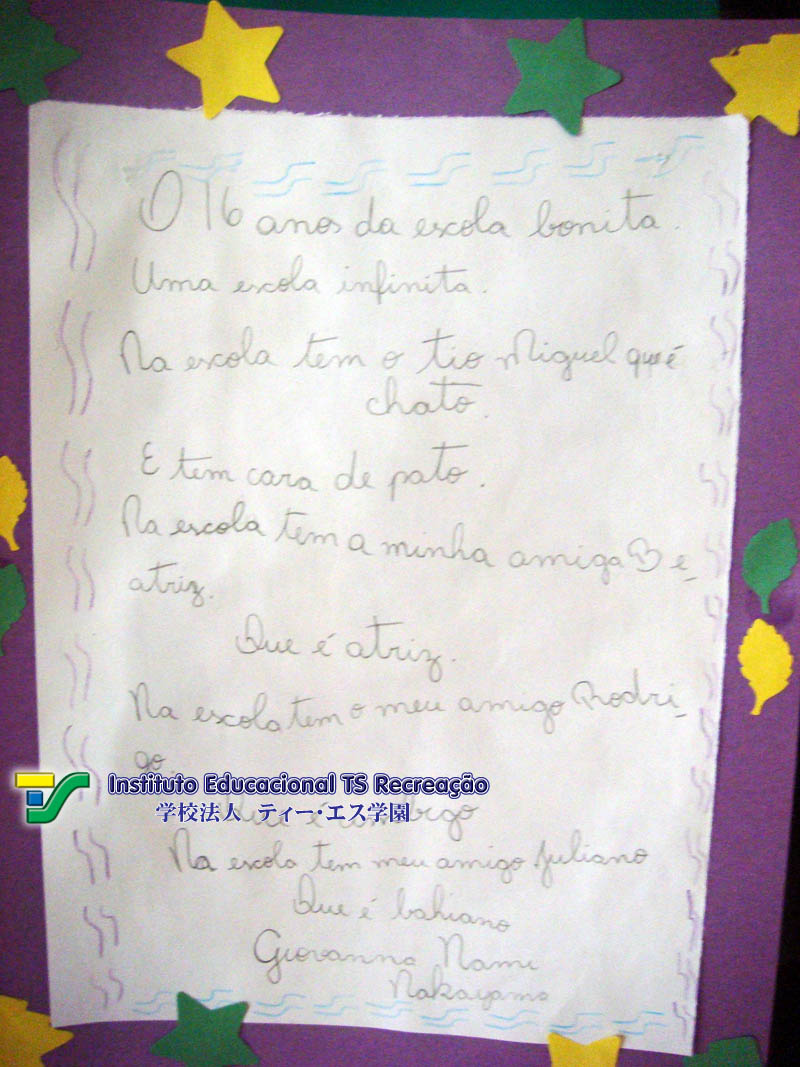 O 16 anos da escola bonita.
Uma escola infinita.
Na escola tem o tio Miguel que é
chato.
E tem cara de pato.
Na escola tem a minha amiga Be_
atriz.
Que é atriz.
Na escola tem o meu amigo Rodri_
go.
Instituto Educacional TS Recreação
学校法人 ティー・エス学園
Que é
Na escola tem meu amigo Juliano
Que é bahiano
Giovanna Nami
Nakayama